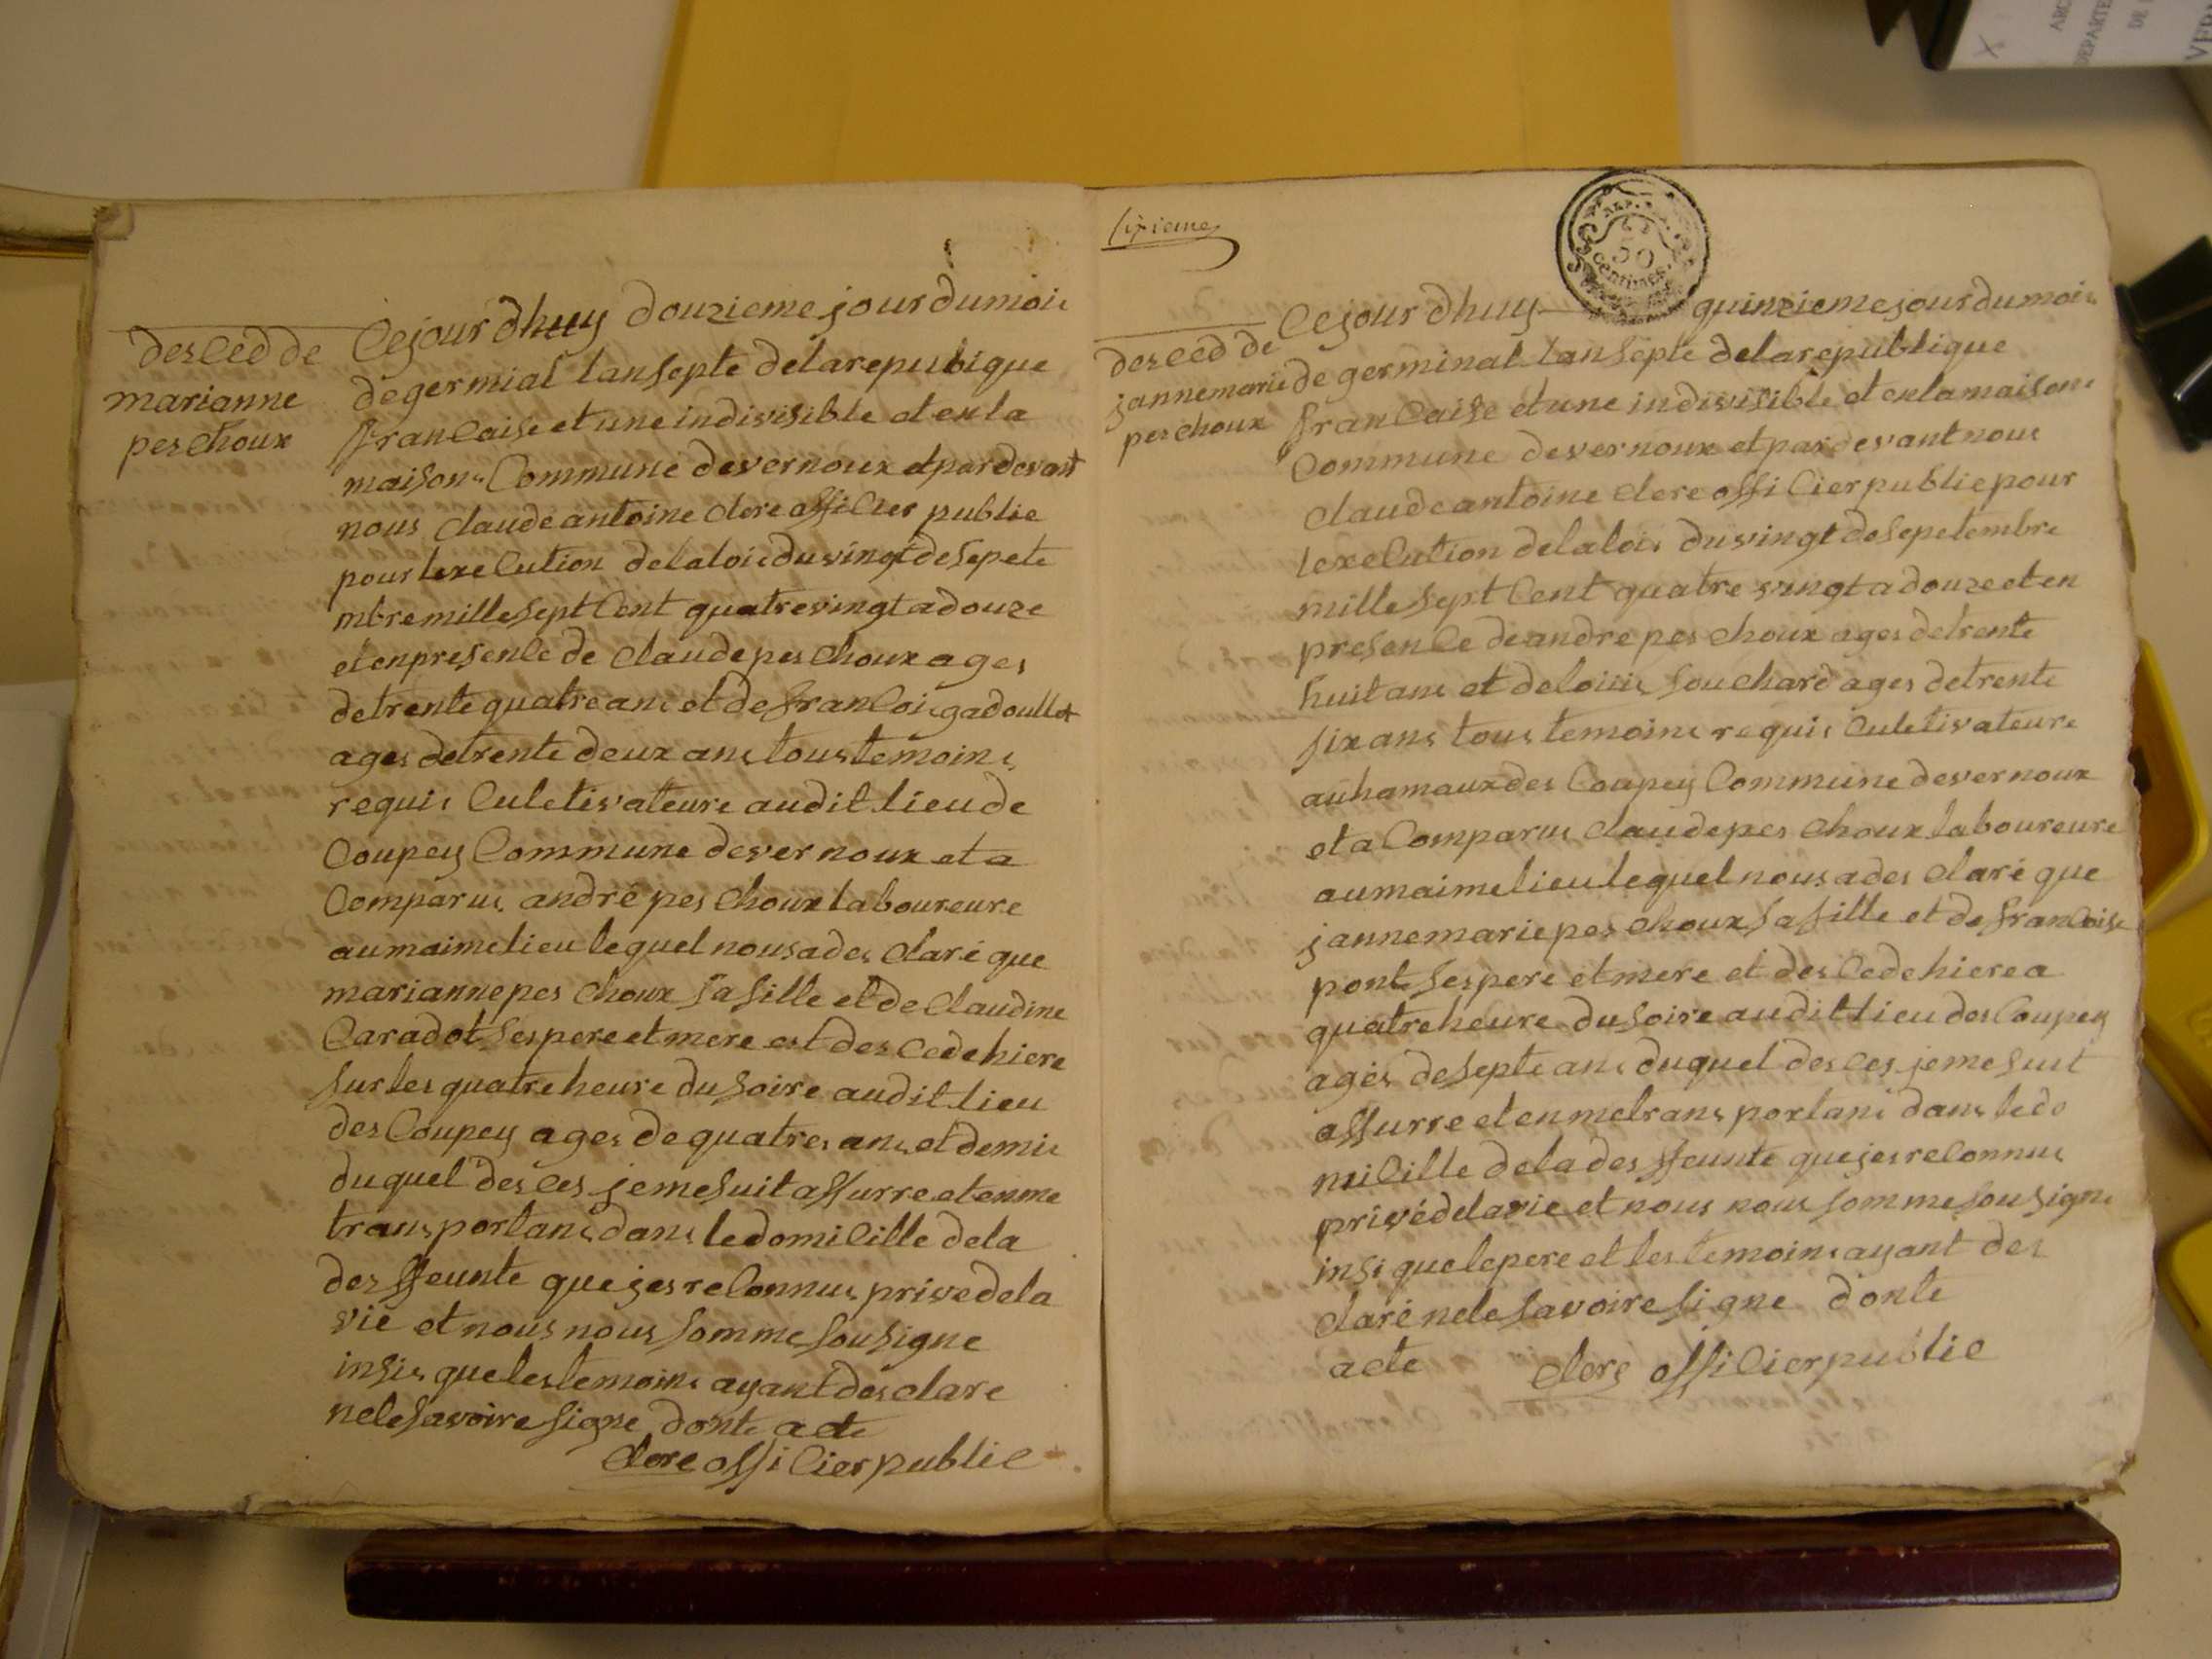 desced de
marianne
peschoux
Cejour dhuy douzieme jour dumois
degermial lan septe delarepubique
francaise et une indivisible et en la
maisons Commune devernoux et pardevant
nous claude antoine clere officier publie
pour lexecution delaloie du vingt de sepete
mbre mille sept Cent quatre vingt adouze
et en presence de claude peschoux ages
detrente quatre ans et de francois gadoullot
ages detrente deux ans tous temoins
requis Culetivateure audit lieu de
Coupey Commune devernoux et a
Comparus andré peschoux laboureure
aumaime lieu lequel nous a des claré que
marianne peschoux sa fille et de claudine
Caradot ses pere et mere est des cede hiere
sur les quatre heure du soire audit lieu
des Coupey ages de quatres ans et demie
duquel desces je me suit assurre et en me
transportans dans le domicille dela
desffeunte que jes reconnus prive dela
vie et nous nous somme sousigne
insis que les temoins ayant desclare
nele savoire signe donte acte
clere officier publie
sixieme
REP. FRA.
50
centimes.
desced de
jannemarie
peschoux
Cejour dhuy quinzieme jour dumois
de germinal lan septe delarepublique
francaise et une indivisible et en la maisons
Commune devernoux et par devant nous
claude antoine clere officier publie pour
lexecution delalois du vingt de sepetembre
mille sept Cent quatre vingt adouze et en
presence de andre peschoux ages detrente
huit ans et de louis souchard ages detrente
six ans tous temoins requis Culetivateure
au hamaux des Coupey Commune devernoux
et a Comparus claude peschoux laboureure
aumaime lieu lequel nous a des claré que
jannemarie peschoux sa fille et de francoise
pont ses pere et mere et des Cede hiere a
quatre heure du soire audit lieu des Coupey
agés de septe ans duquel desces je me suit
assurre et en metransportans dans ledo
micille dela desffeunte que jes reconnus
privé delavie et nous nous somme sousigne
insi que le pere et les temoins ayant des
claré nele savoire signe donte
acte clere officier publie
ARC
DEPARTE
DE L
VER